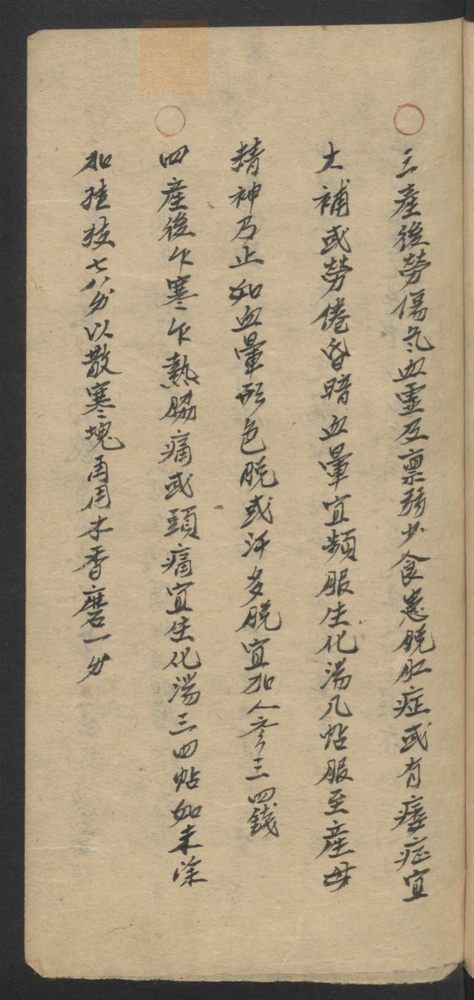 三產後勞傷氣血虛及稟弱少食患脫肛症或有痿症宜
大補或勞倦昏暗血暈宜頻服生化湯几帖服至產母
精神乃止如血暈形色脫或汗多脫宜加人參三四錢
四產後乍寒乍熱脇痛或頭痛宜生化湯三四帖如未除
加桂枝七八分以散寒塊再用木香磨一分